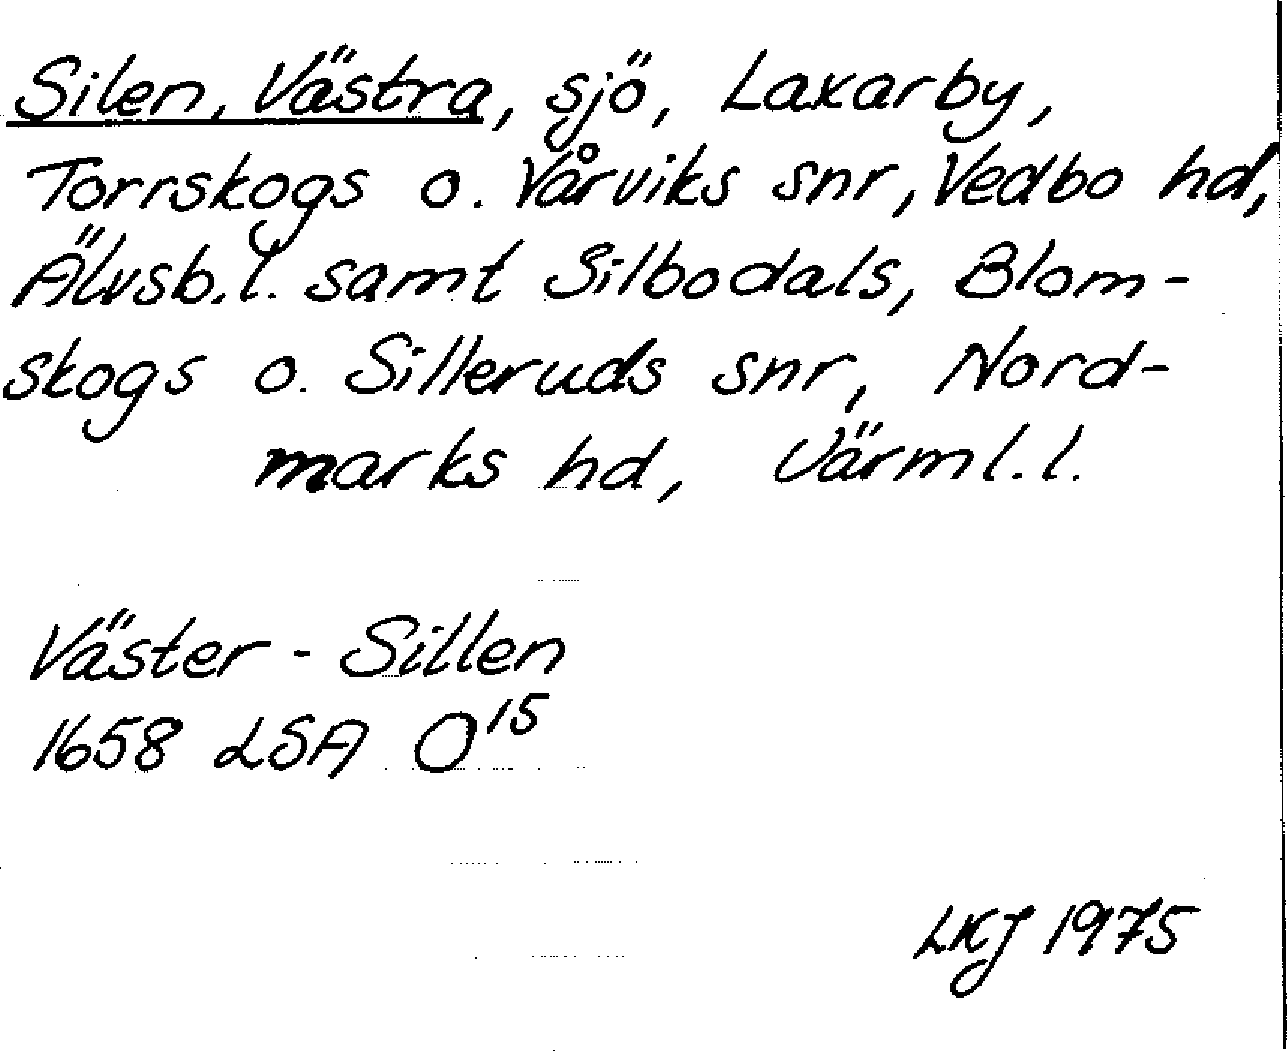 Silen, Västra, sjö, Laxarby,
Torrskogs o. Vårviks snr, Vedbo hd,
Älvsb.l. samt Silbodals, Blom-
skogs o. Silleruds snr, Nord-
marks hd, Värml.l.
Väster - Sillen
1658 LSA O15
LKJ 1975